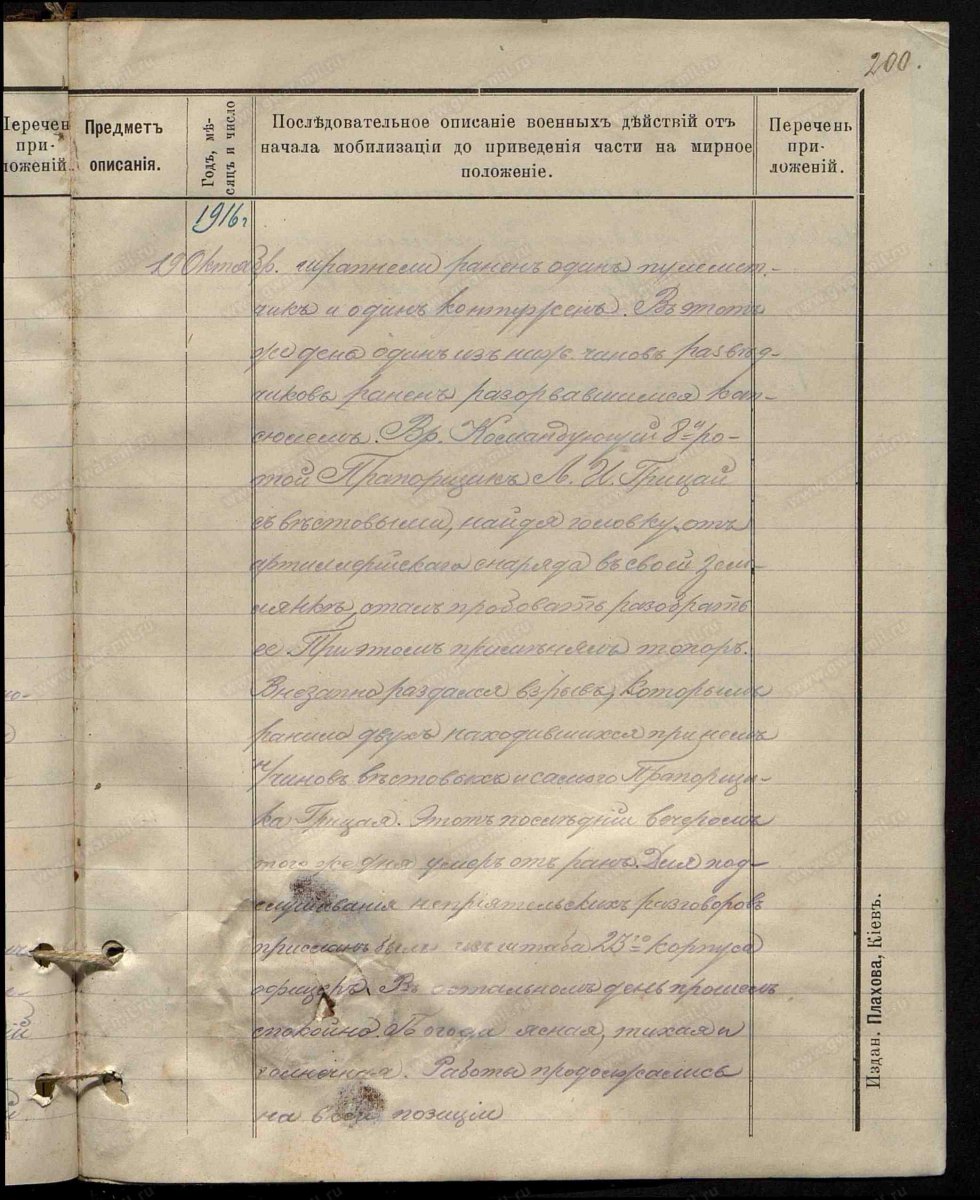 200.
Перечен
при-
ложеній.
Предметъ
описанія.
Годъ, мѣ-
сяцъ и число
Послѣдовательное описаніе военныхъ дѣйствій отъ
начала мобилизаціи до приведенія части на мирное
положеніе.
Перечень
при-
ложеній.
1916 г
19 Октябр. шрапнели раненъ одинъ пулемет-
чикъ и одинъ контуженъ. Въ этотъ
же день одинъ изъ ниж. чиновъ развѣд-
чиковъ раненъ разорвавшимся кап-
сюлемъ. Вр. Командующій 8й ро-
той Прапорщикъ Л. И. Грицай
съ вѣстовыми, найдя головку отъ
артиллерійскаго снаряда въ своей зем-
лянкѣ, сталъ пробовать разобрать
ее. При этомъ примѣнялъ топоръ.
Внезапно раздался взрывъ, которымъ
ранило двухъ находившихся при немъ
н/чиновъ вѣстовыхъ и самого Прапорщи-
ка Грицая. Этотъ послѣдній вечеромъ
того же дня умеръ отъ ранъ. Для под-
слушиванія непріятельскихъ разговоровъ
присланъ былъ изъ штаба 23го корпуса
офицеръ. Въ остальномъ день прошелъ
спокойно. Погода ясная, тихая и
солнечная. Работы продолжались
на всей позиціи
Издан. Плахова, Кіевъ.